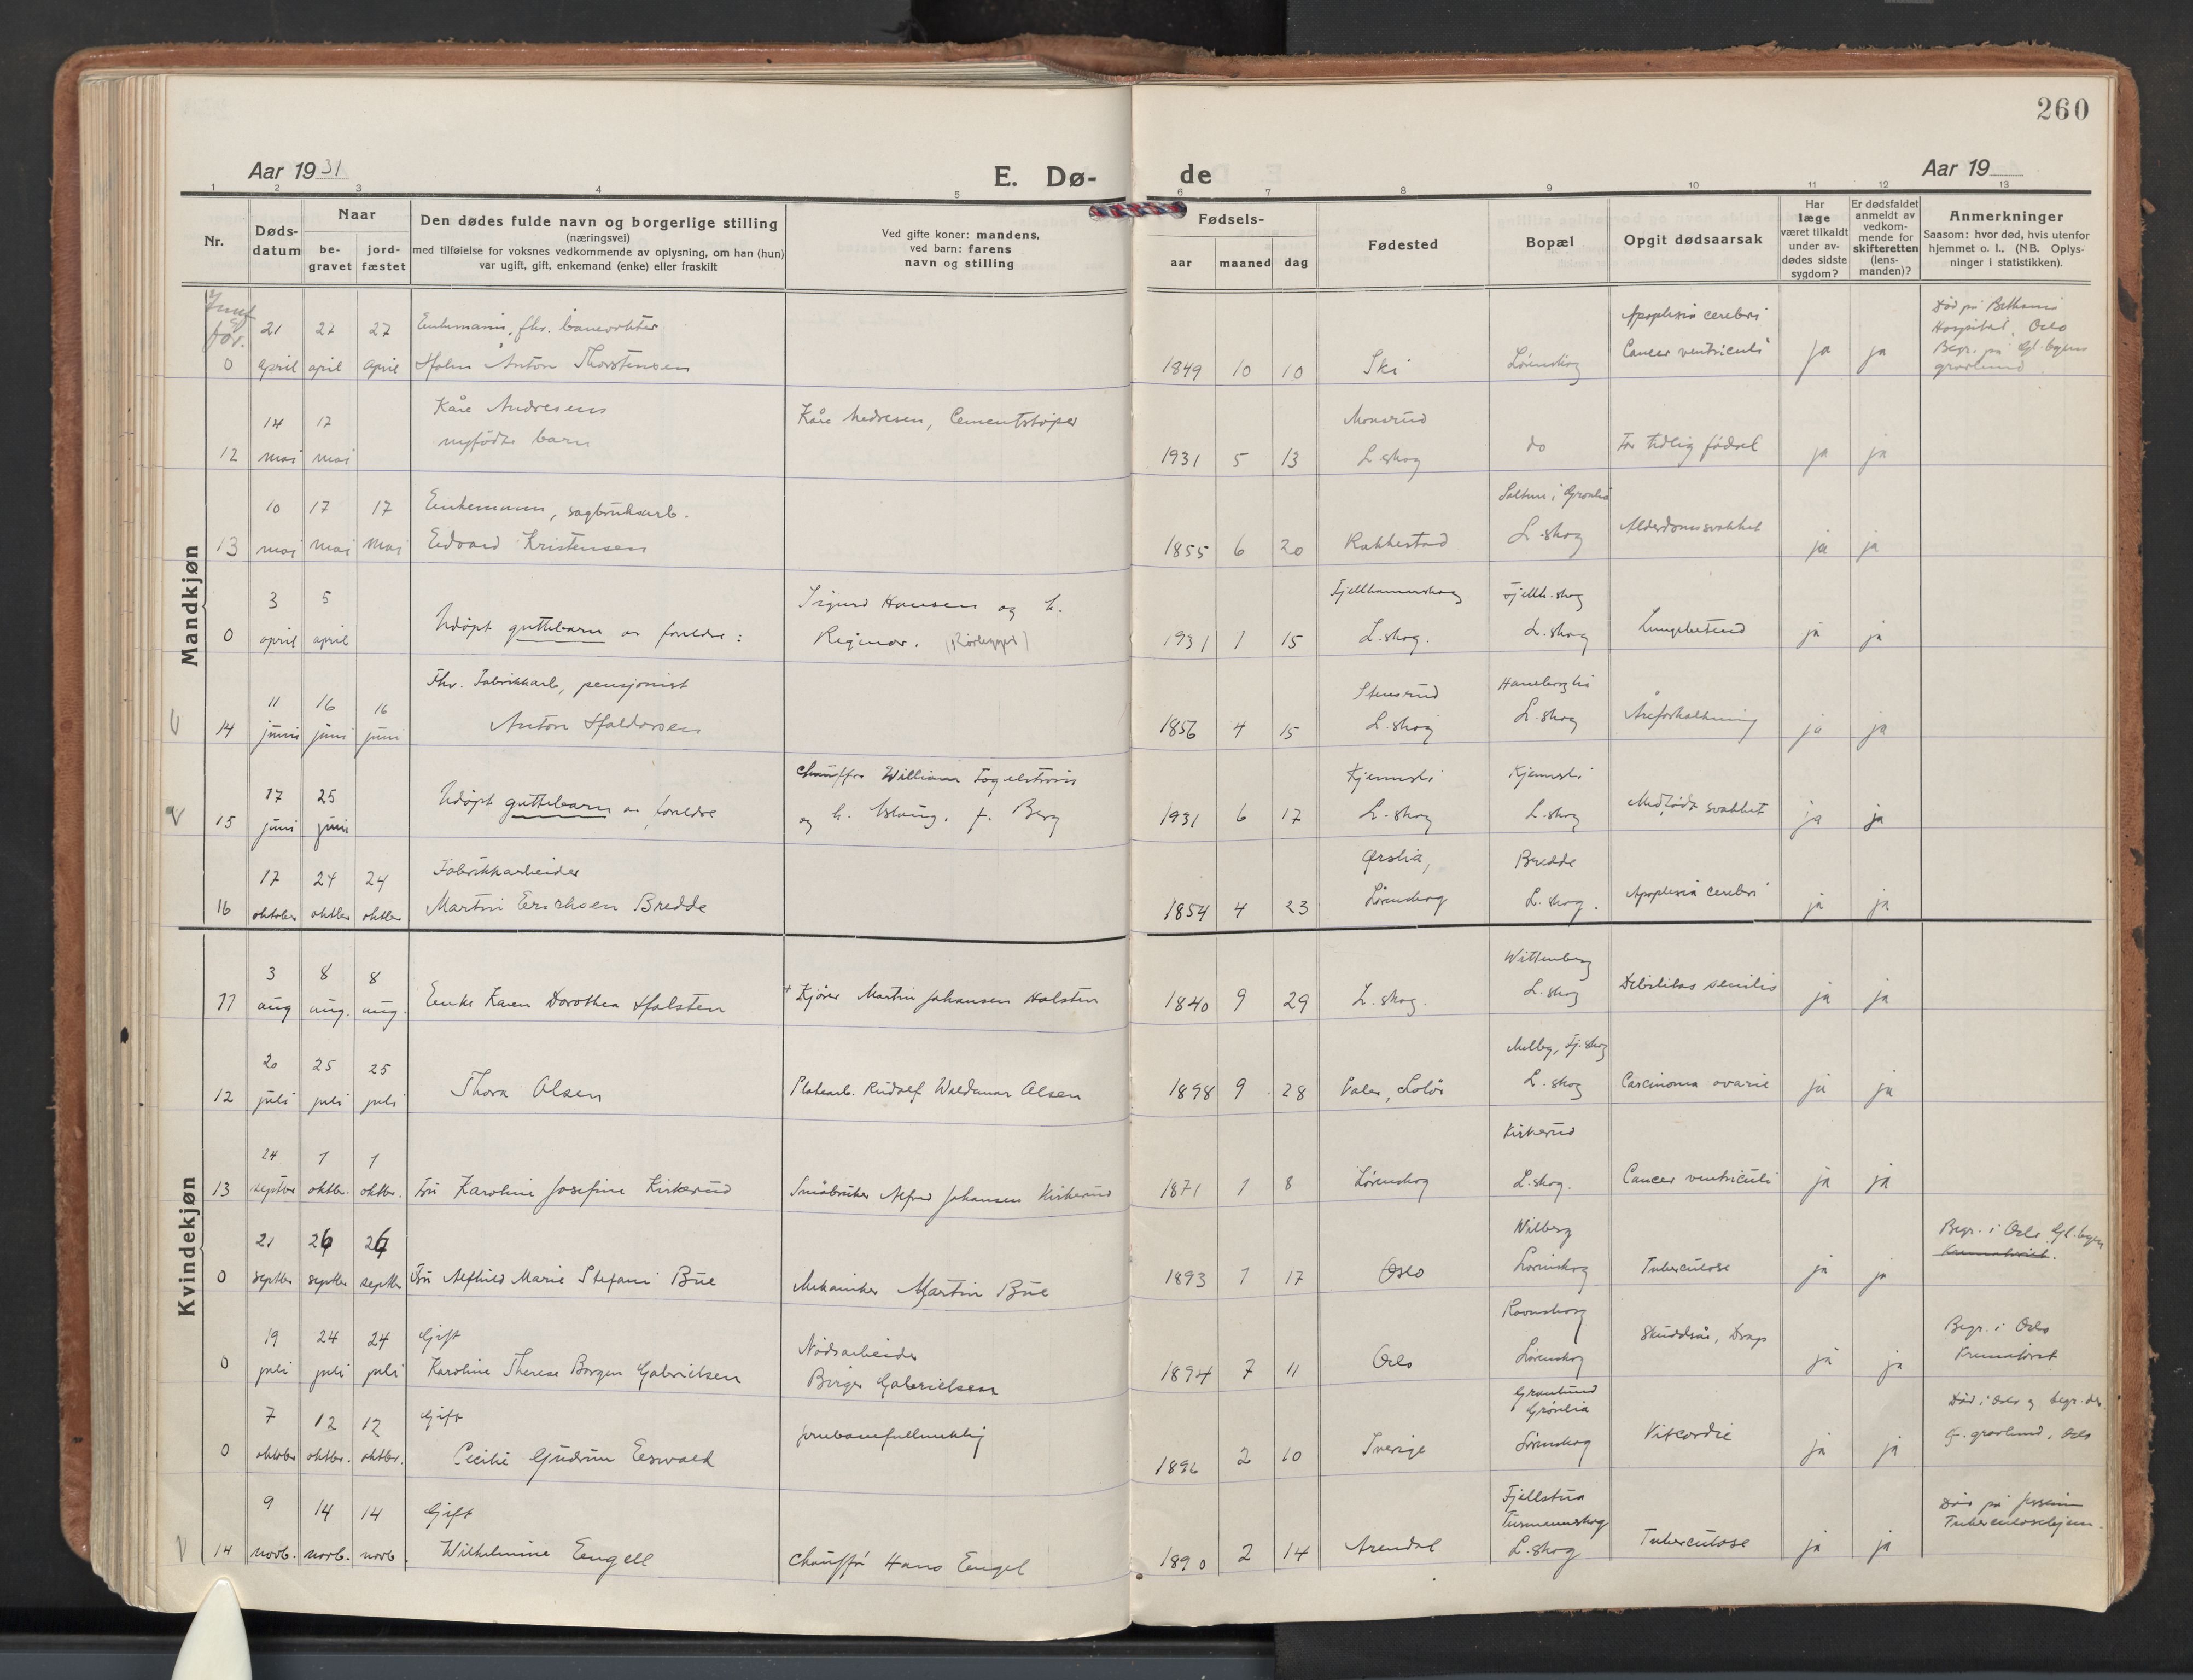 260
Aar 1931
E. Dø-
de
Aar 19
1 2 3 4 5 6 7 8 9 10 11 12 13
Nr.
Døds-
datum
Naar
be-
gravet
jord-
fæstet
Den dødes fulde navn og borgerlige stilling
(næringsvei)
med tilføielse for voksnes vedkommende av oplysning, om han (hun)
var ugift, gift, enkemand (enke) eller fraskilt
Ved gifte koner: mandens,
ved barn: farens
navn og stilling
Fødsels-
aar maaned dag
Fødested
Bopæl
Opgit dødsaarsak
Har
læge
været tilkaldt
under av-
dødes sidste
sygdom?
Er dødsfaldet
anmeldt av
vedkom-
mende for
skifteretten
(lens-
manden)?
Anmerkninger
Saasom: hvor død, hvis utenfor
hjemmet o. l.. (NB. Oplys-
ninger i statistikken).
Mandkjøn
før.
0
21 27 27
april april april
Enkemann, fhv. banevokter
Holm Anton Thorstensen
1849 10 10
Ski
Lørenskog
Apoplexia cerebri
Cancer ventriculi
ja ja
Død på Bethania
Hospital, Oslo
Begr. på Gl. byens
gravlund
12
14 17
mai mai
Kåre Andresens
nyfødte barn
Kåre Andresen, Cementstøper
1931 5 13
Monsrud
L skog
do
For tidlig fødsel
ja ja
13
10 17 17
mai mai mai
Enkemann, sagbruksarb.
Edvard Kristensen
1855 6 20
Rakkestad
L. skog
Alderdomssvakhet
ja ja
0
3 5
april april
Udøpt guttebarn av foreldre:
Sigurd Hansen og h.
Reginar.
1931 1 15
Fjellhammerskog
L. skog.
Fjellh. skog
L. skog
Lungebetend
ja ja
14
11 16 16
juni juni juni
Fhv. Fabrikkarb, pensjonist
Anton Haldorsen
1856 4 15
Stensrud
L. skog
Haneborgli
L. skog
Åreforkalkning
ja ja
15
17 25
juni juni
Udøpt guttebarn av foreldre
Chauffør William Fogelstrøm
og h. Aslaug, f. Berg
1931 6 17
Kjennsli
L. skog
Kjennsli
L. skog
Medfødt svakhet
ja ja
16
17 24 24
oktober oktber oktber
Fabrikkarbeider
Martin Erichsen Bredde
1854 4 23
Lørenskog
Bredde
L. skog.
Apoplexia cerebri
ja ja
Kvindekjøn
11
3 8 8
aug aug. aug.
Enke Karen Dorothea Halsten
† Kjører Martin Johansen Halsten
1840 9 29
L. skog.
Wittenberg
L. skog
Debilitas senilis
ja ja
12
20 25 25
juli juli juli
Thora Olsen
Platearb. Rudolf Waldemar Olsen
1898 9 28
Våler, Solør
Melby, Fj. skog
L. skog
Carcinoma ovarie
ja ja
13
24 1 1
septber oktbr. oktbr.
Fru Karoline Josefine Kirkerud
Småbruker Alfred Johansen Kirkerud
1871 1 8
Lørenskog
Kirkerud
L. skog.
Cancer ventriculi
ja ja
0
21 26 26
septber septber septbr
Fru Alfhild Marie Stefani Bue
Mekaniker Martin Bue
1893 1 17
Oslo
Wilberg
Lørenskog
Tuberculose
ja ja
Begr. i Oslo, Gl. byen
Krematoriet.
0
19 24 24
juli juli juli
Gift
Karoline Therese Borgen Gabrielsen
Nødsarbeider
Birger Gabrielsen
1894 7 11
Oslo
Ravnsborg
Lørenskog
Skuddsår, Drap
ja ja
Begr. i Oslo
Krematoriet
0
7 12 12
oktober oktbr. oktbr.
Gift
Cecilie Gudrun Eswald
jernbanefullmektig
1896 2 10
Sverige
Granlund
Grønlia
Lørenskog
Vitcordie
ja ja
Død i Oslo og begr. der.
gravlund, Oslo
14
9 14 14
novb. novb. novb.
Gift
Wilhelmine Engell
Chauffør Hans Engel
1890 2 14
Arendal
Fjellstua
L. skog
Tuberculose
ja ja
Død på Jessheim
Tuberculosehjem.